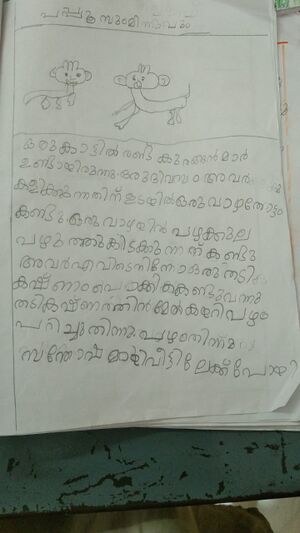 പപ്പു സും മിന്നുവും
ഒരു കാട്ടിൽ രണ്ട് കുരങ്ങൻമാർ
ഉണ്ടായിരുന്നു ഒരു ദിവസം അവർ
കളിക്കുന്നതിന് ഇടയിൽ ഒരു വാഴതോട്ടം
കണ്ടു ഒരു വാഴയിൽ പഴക്കുല
പഴുത്തുകിടക്കുന്നത് കണ്ടു
അവർ എവിടെനിന്നോ ഒരു തടി
കഷ്ണം പൊക്കി കൊണ്ടുവന്നു
തടികഷ്ണത്തിൻ മേൽ കയറി പഴം
പറിച്ചു തിന്നു പഴം തിന്ന്
സന്തോഷമായി വീട്ടിലേക്ക് പോയി